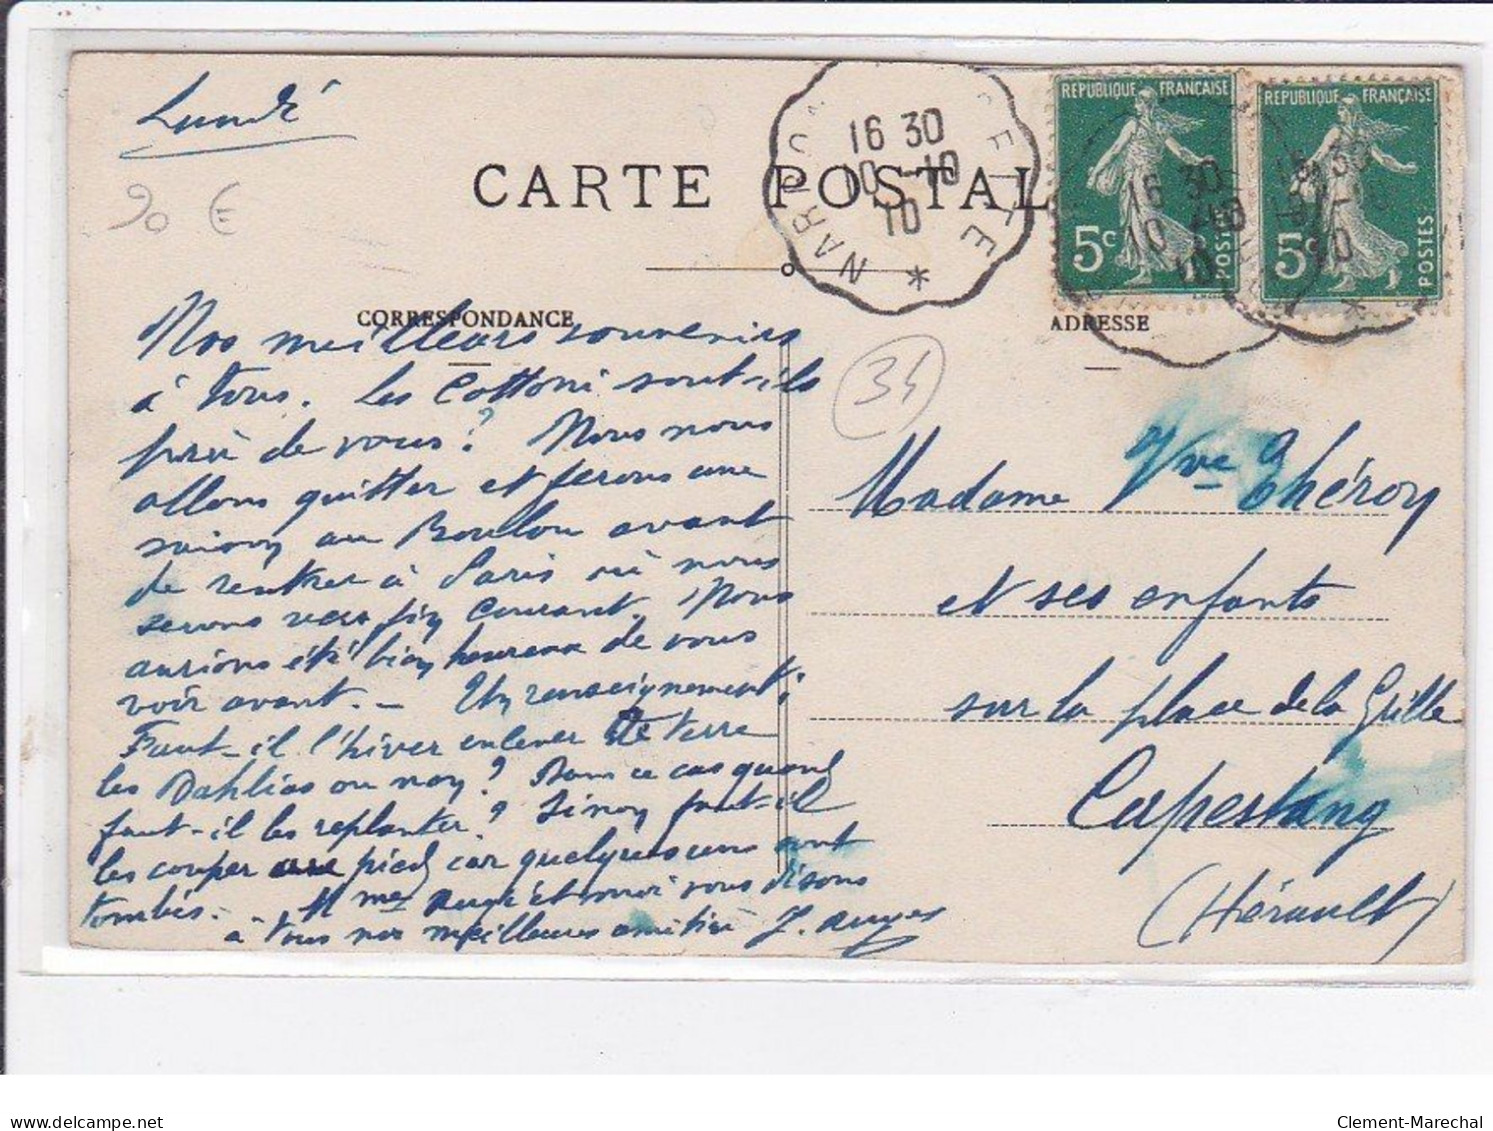 Lundi
90 €
CARTE POSTALE
NARBONNE * CETTE
16 30
10 -10
10
REPUBLIQUE FRANÇAISE
5c
POSTES
16 30
10 -10
10
REPUBLIQUE FRANÇAISE
5c
POSTES
16 30
10
CORRESPONDANCE
Nos meilleurs souvenirs
à tous. Les Cottoni sont-ils
près de vous? Nous nous
allons quitter et ferons une
saison au Boulou avant
de rentrer à Paris où nous
serons vers fin courant. Nous
aurions été bien heureux de vous
voir avant. - Un renseignement:
Faut-il l'hiver enlever de terre
les Dahlias ou non? Dans ce cas quand
faut-il les replanter? Sinon faut-il
les couper au pied car quelques uns sont
tombés. - Mme Augé et moi vous disons
à tous nos meilleures amitiés J.
ADRESSE
34
Madame Vve Théron
et ses enfants
sur la place de la Grille
Capestang
(Hérault)
Clement-Marechal
www.delcampe.net